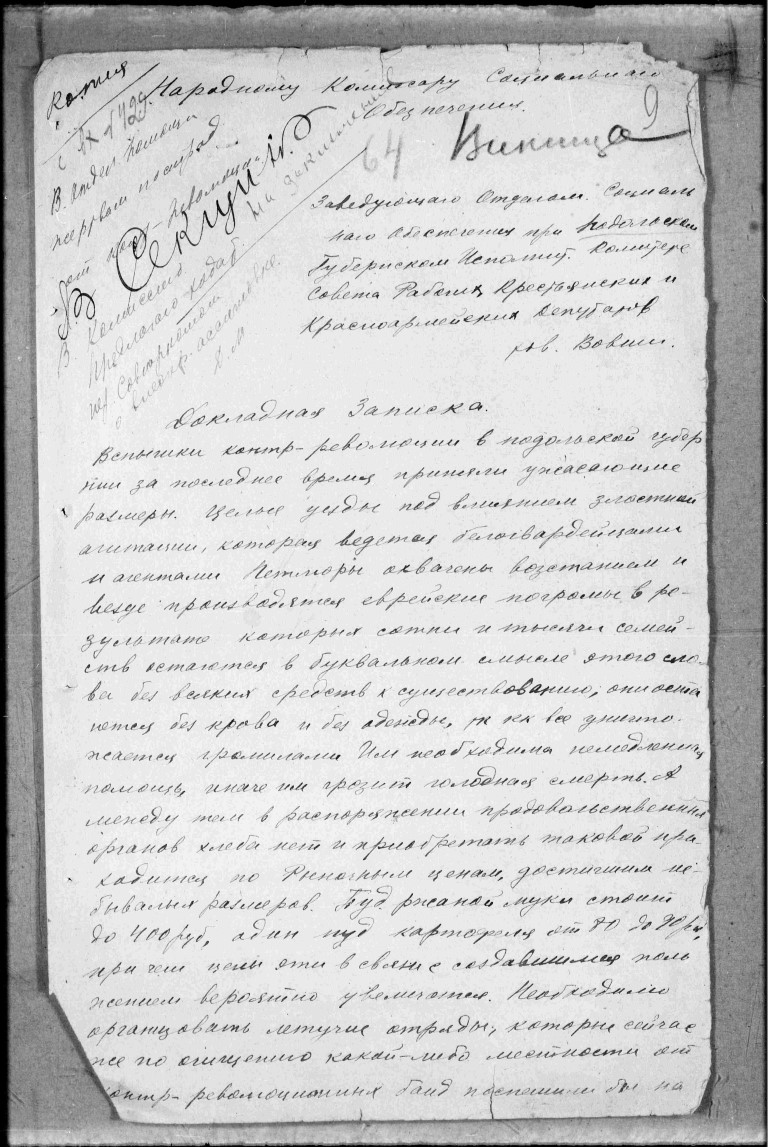 Копия
Народному Комиссару Социальнаго
Обезпечения.
64 Винница 9
В. Отдел Помощи
жертвам
контр-революции
на заключение
В Комиссию
Предлагаю
Д. М
Заведующаго Отделом Социаль
наго Обезпечения при Подольском
Губернском Исполнит. Комитете
Совета Рабочих, Крестьянских и
Красноармейских Депутатов
тов. Вовши.
Докладная Записка.
Вспышки контр-революции в подольской губер
нии за последнее время приняли ужасающие
размеры. Целые уезды под влиянием злостной
агитации, которая ведется белогвардейцами
и агентами Петлюры охвачены возстанием и
везде производятся еврейские погромы в ре-
зультате которых сотни и тысячи семей-
ств остаются в буквальном смысле этого сло-
ва без всяких средств к существованию; они оста
ются без крова и без одежды, т кк все уничто-
жается громилами Им необходима немедленная
помощь, иначе им грозит голодная смерть. А
между тем в распоряжении продовольственных
органов хлеба нет и приобретать таковой при-
ходится по Рыночным ценам, достигшим не-
бывалых размеров. Пуд. ржаной муки стоит
до 400 руб, один пуд картофеля от 80 до 90 руб,
при чем цены эти в связи с создавшимся поло
жением вероятно увеличатся. Необходимо
организовать летучие отряды, которые сейчас
же по очищению какой-либо местности от
контр-революционных банд поспешили бы на